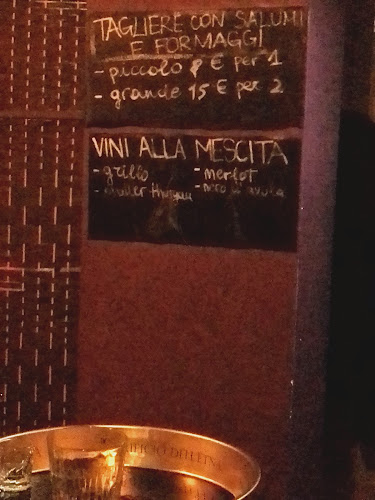 TAGLIERE CON SALUMI
E FORMAGGI
- piccolo 8 € per 1
- grande 15 € per 2
VINI ALLA MESCITA
- grillo - merlot
- muller thurgau - nero d'avola
DELL'ETNA